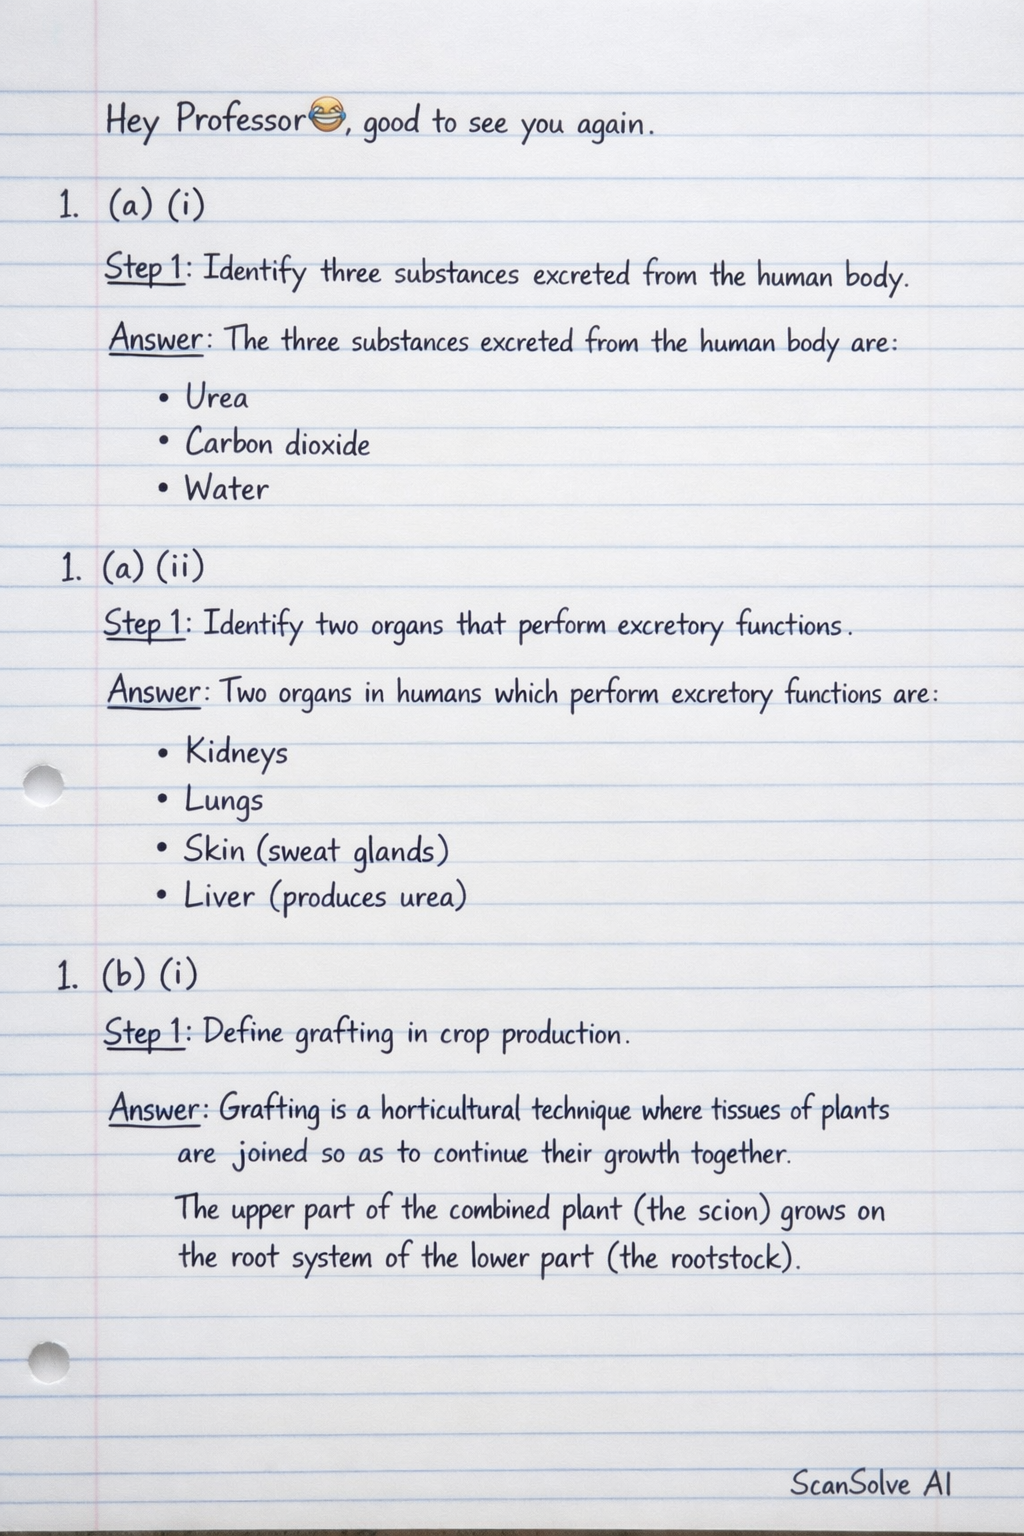 Hey Professor😂, good to see you again.
1. (a) (i)
Step 1: Identify three substances excreted from the human body.
Answer: The three substances excreted from the human body are:
• Urea
• Carbon dioxide
• Water
1. (a) (ii)
Step 1: Identify two organs that perform excretory functions.
Answer: Two organs in humans which perform excretory functions are:
• Kidneys
• Lungs
• Skin (sweat glands)
• Liver (produces urea)
1. (b) (i)
Step 1: Define grafting in crop production.
Answer: Grafting is a horticultural technique where tissues of plants
are joined so as to continue their growth together.
The upper part of the combined plant (the scion) grows on
the root system of the lower part (the rootstock).
ScanSolve AI